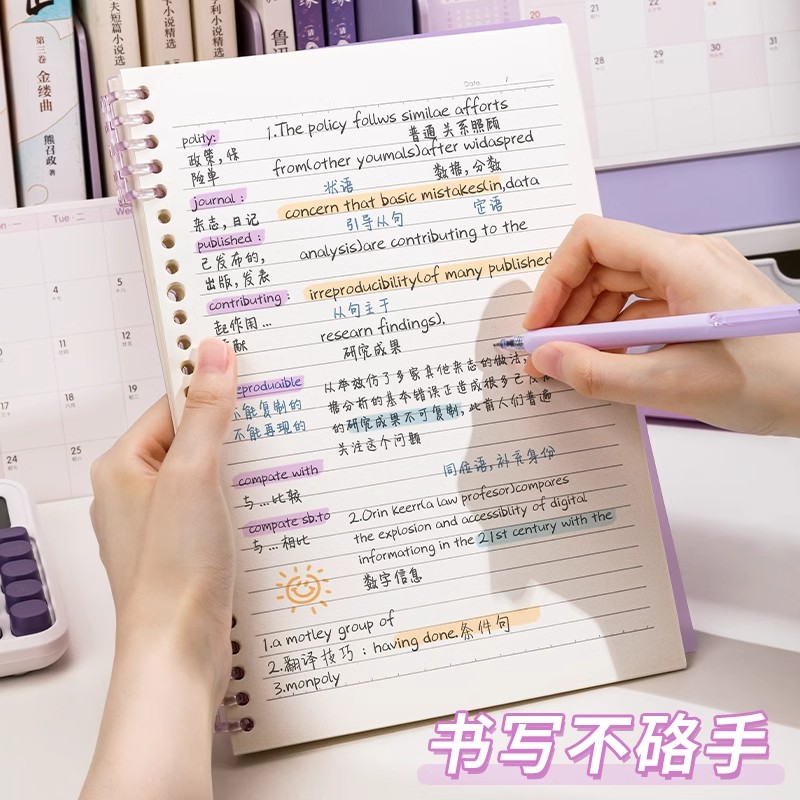 第三卷
金缕曲
熊召政
夫短篇小说精选
小说精选
利小说精选
鲁迅
20
21
22
28
29
30
Tu 二
We
4
5
11
12
18
19
24
25
17
Data
/
polity:
政策,保
险单
journal:
杂志,日记
published:
己发布的,
出版,发表
contributing:
起作用...
献
eproduaible
不能复制的
不能再现的
compate with
与...比较
compate sb.to
与...相比
1.The policy follws similae afforts
普通 关系照顾
from(other youmals)after widaspred
状语
数据,分数
concern that basic mistakes(in,data
引导从句
定语
analysis)are contributing to the
irreproducibility(of many published
从句主干
researn findings).
研究成果
从举效仿了多家其他杂志的做法,
据分析的基本错误正造成很多已发
的研究成果不可复制,此前人们普遍
关注这个问题
同位语,补充身份
2.Orin Keerr(a law profesor)compares
the explosion and accessiblity of digital
informationg in the 21st century with the
数字信息
1.a motley group of
2.翻译技巧:having done.条件句
3.monpoly
书写不硌手